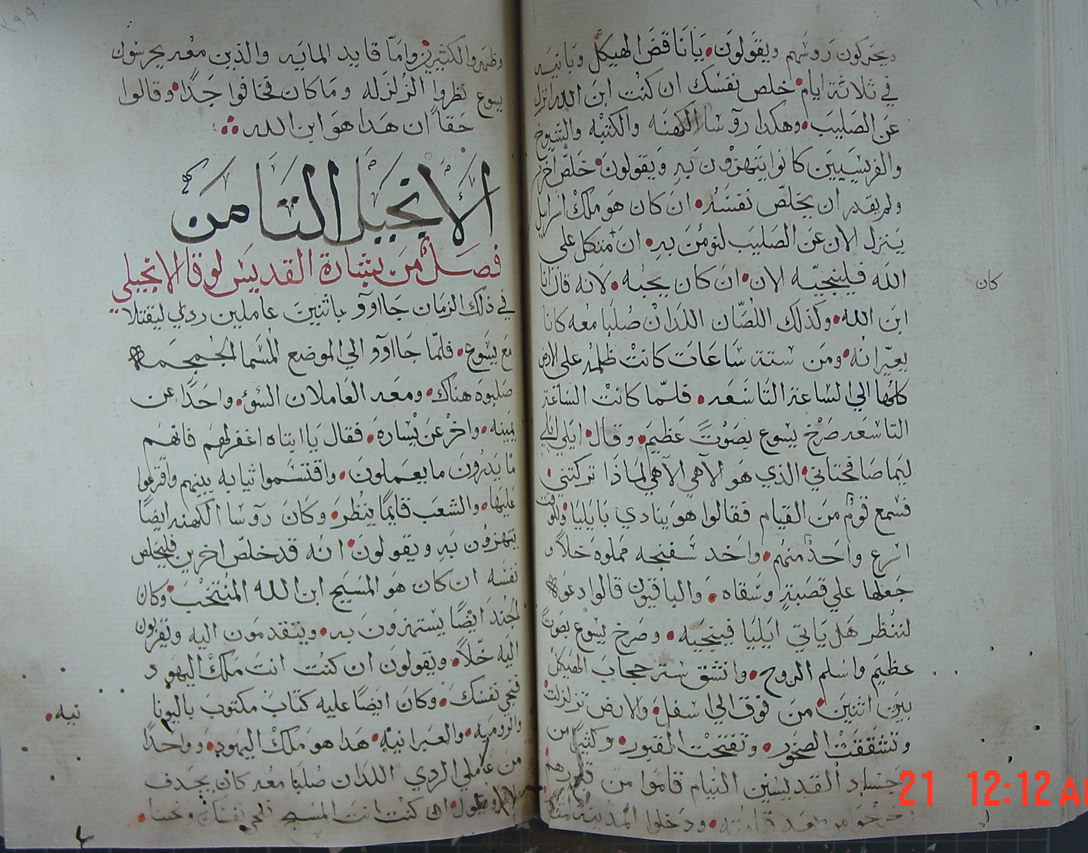 ويحركون روسهم ويقولون يا ناقض الهيكل وبانيه
في ثلاثة ايام خلص نفسك ان كنت ابن الله انزل
عن الصليب وهكدا روسا الكهنه والكتبه والشيوخ
والفريسيين كانوا يتهزون به ويقولون خلص اخر
ولم يقدر ان يخلص نفسه ان كان هو ملك اسرايل
ينزل الان عن الصليب لنومن به ان متكل علي
الله فلينجيه الان ان كان يحبه لانه قال انا
كان
ابن الله وكذلك اللصان اللدان صلبا معه كانا
يعيرانه ومن ستة ساعات كانت ظلمه علي الارض
كلها الي الساعة التاسعه فلما كانت الساعة
التاسعه صرخ يسوع بصوت عظيم وقال ايلي ايلي
لما صافختاني الذي هو الاهي الاهي لماذا تركتني
فسمع قوم من القيام فقالوا هو ينادي بايليا وللوقت
اسرع واحد منهم واخد سفنجه فملوه خلا و
جعلها علي قصبة وسقاه والباقيون قالوا دعوه
لننظر هل ياتي ايليا فينجيه وصرخ يسوع بصوت
عظيم واسلم الروح وانشق ستر حجاب الهيكل
بين اتنين من فوق الي اسفل والارض تزلزلت
وتشققت الصخور وتفتحت القبور وكثير من
اجساد القديسين النيام قاموا من قبورهم
ودخلوا المدينة
وظهروا لكثيرين واما قايد المايه والذين معه يحرسون
يسوع نظروا الزلزله وما كان فخافوا جدا وقالوا
حقا ان هدا هو ابن الله
الانجيل التامن
فصل من بشارة القديس لوقا الانجيلي
في ذلك الزمان جااوو باتنين عاملين ردي ليقتلا
مع يسوع فلما جااوو الي الموضع المسما الجمجمه
صلبوه هناك ومعه العاملان السؤ واحدا عن
يمينه واخر عن يساره فقال يا ابتاه اغفر لهم فانهم
ما يدرون ما يعملون واقتسموا تيابه بينهم واقترعوا
عليها والشعب قايما ينظر وكان روسا الكهنه ايضا
يتهزون به ويقولون انه قد خلص اخرين فليخلص
نفسه ان كان هو المسيح ابن الله المنتخب وكان
الجند ايضا يستهزون به ويتقدمون اليه ويقربون
اليه خلا ويقولون ان كنت انت ملك اليهود
فنجي نفسك وكان ايضا عليه كتاب مكتوب باليونا
نيه
والروميه والعبرانيه هدا هو ملك اليهود وواحدا
من عاملي الردي اللدان صلبا معه كان يجدف
ويقول ان كنت انت المسيح فنجي نفسك ونجينا
21 12:12 A